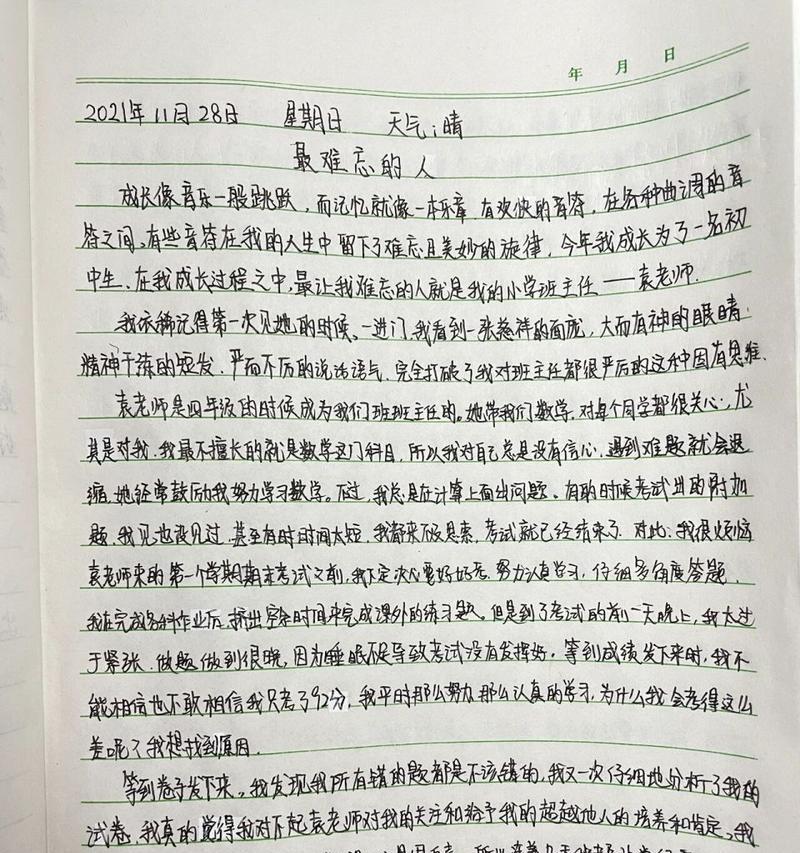 年 月 日
2021年11月28日 星期日 天气:晴
最难忘的人
成长像音乐一般跳跃,而记忆就像一本乐章,有欢快的音符,在各种曲调的音
符之间,有些音符在我的人生中留下了难忘且美妙的旋律,今年我成长为了一名初
中生,在我成长过程之中,最让我难忘的人就是我的小学班主任——袁老师.
我依稀记得第一次见她的时候、一进门,我看到一张慈祥的面庞,大而有神的眼睛.
精神干练的短发,严而不厉的说话语气,完全打破了我对班主任都很严厉的这种固有思维.
袁老师是四年级的时候成为我们班班主任的。她带我们数学,对每个同学都很关心;尤
其是对我,我最不擅长的就是数学这门科目,所以我对自己总是没有信心,遇到难题就会退
缩,她经常鼓励我努力学习数学。不过,我总是在计算上面出问题、有的时候考试出的附加
题,我见也没见过,甚至有时时间太短,我都来不及思索,考试就已经结束了.对此,我很烦恼
袁老师来的第一个学期期末考试之前,我下定决心要好好考,努力认真学习,仔细多角度答题.
我在完成各科作业后,挤出空余时间来完成课外的练习题。但是到了考试的前一天晚上,我太过
于紧张,做题做到很晚,因为睡眠不足导致考试没有发挥好,等到成绩发下来时,我不
能相信也不敢相信我只考了92分,我平时那么努力,那么认真的学习,为什么我会考得这么
差呢?我想找到原因.
等到卷子发下来,我发现我所有错的题都是不该错的,我又一次仔细地分析了我的
试卷,我真的觉得我对不起袁老师对我的关注和给予我的超越他人的培养和肯定,我